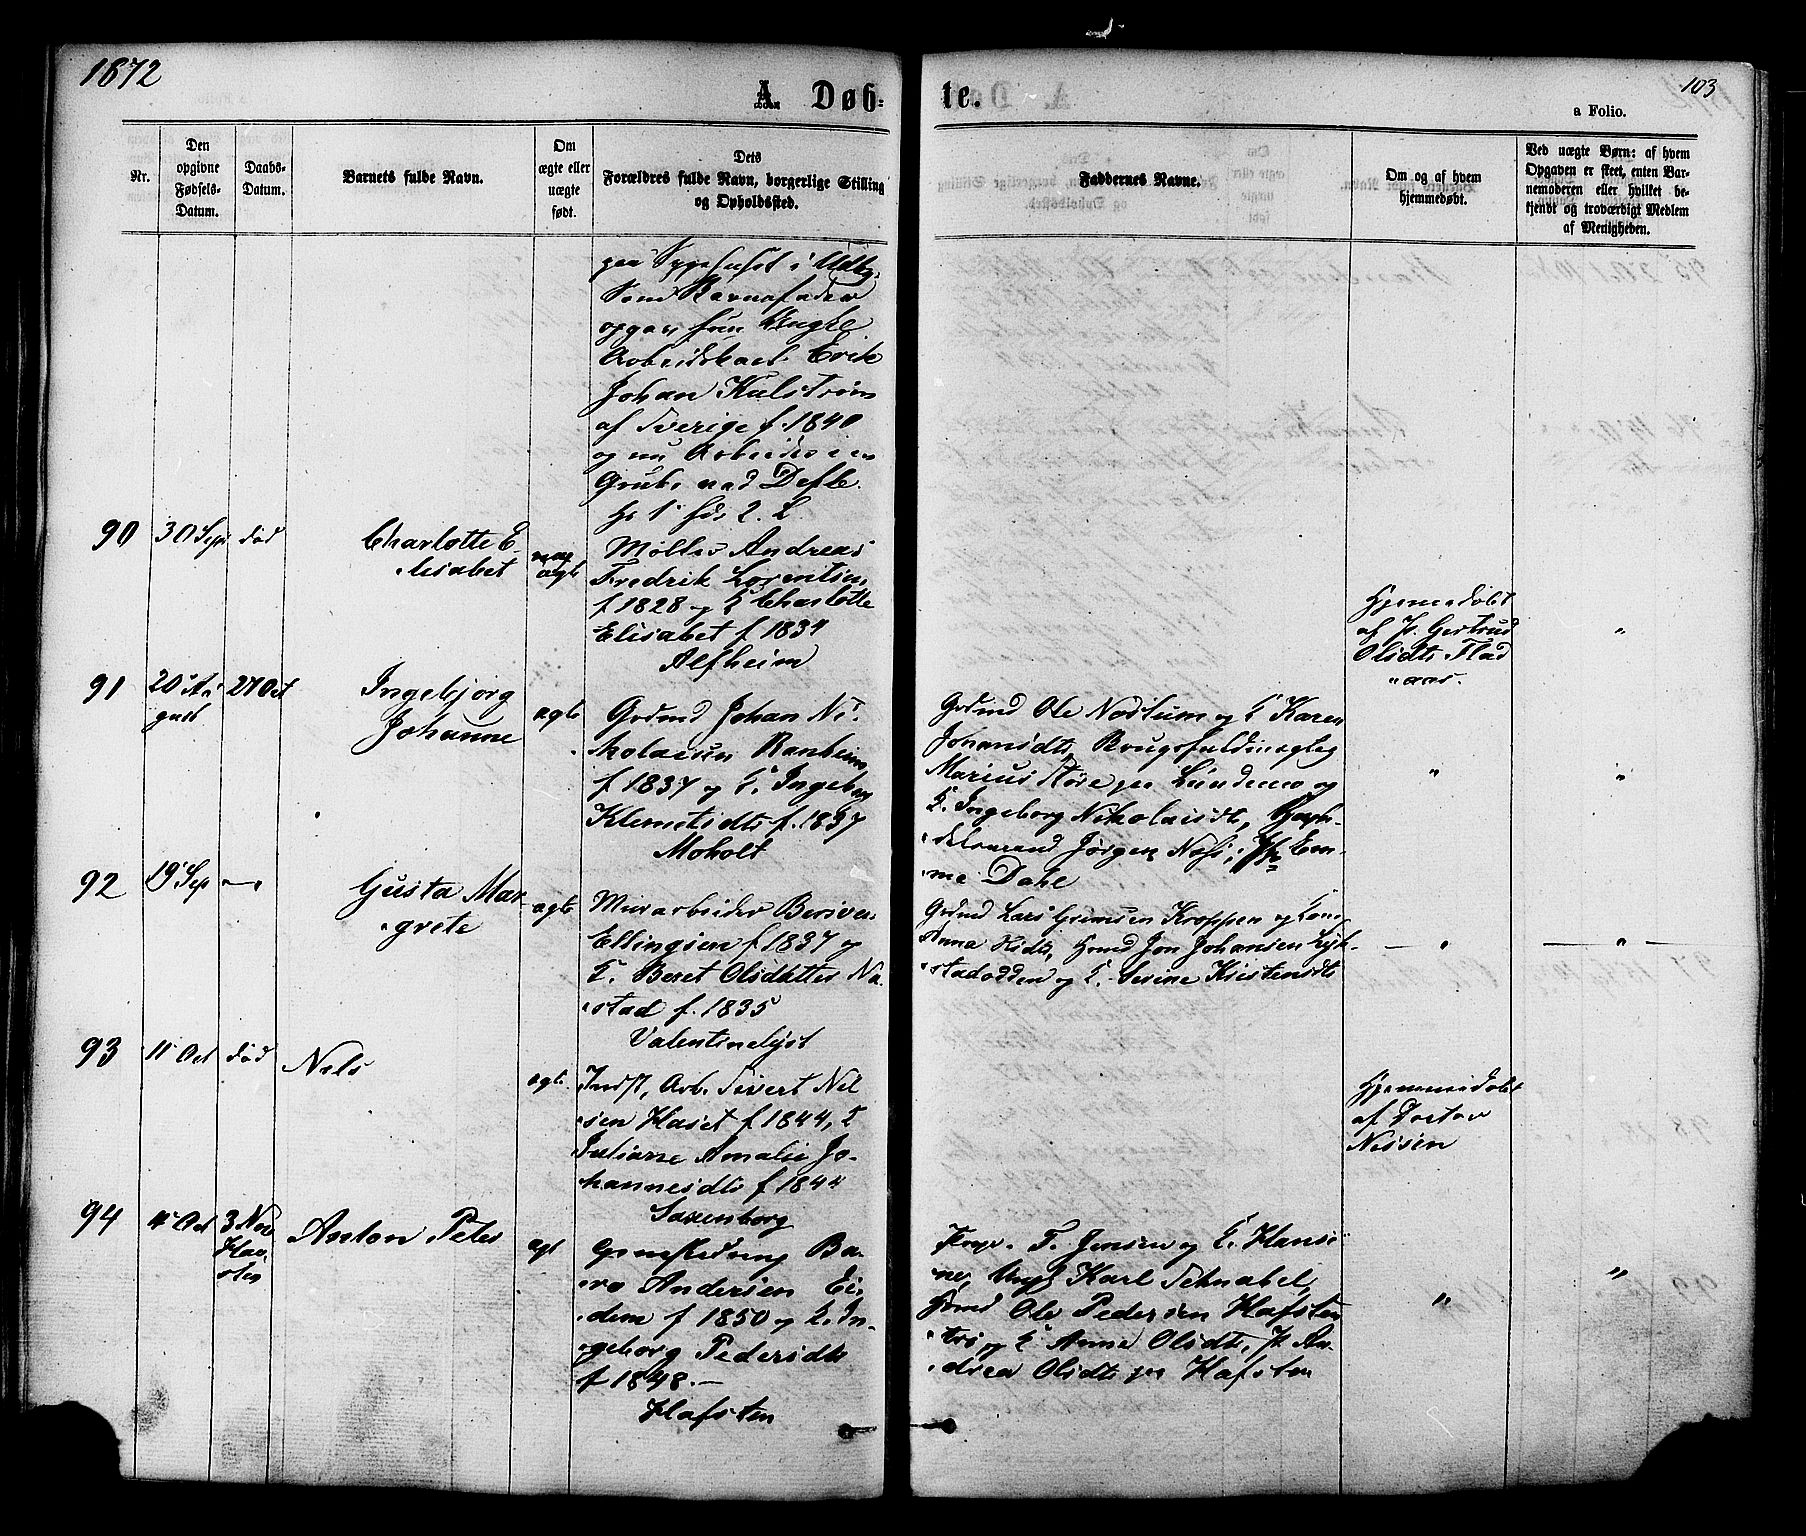 1872
103
A. Døb-
te.
a Folio.
Nr.
Den
opgivne
Fødsels-
Datum.
Daabs-
Datum.
Barnets fulde Navn.
Om
ægte eller
uægte
født.
Dets
Forældres fulde Navn, borgerlige Stilling
og Opholdssted.
Faddernes Navne.
Om og af hvem
hjemmedøbt.
Ved uægte Børn: af hvem
Opgaven er skeet, enten Bar-
nemoderen eller hvilket be-
kjendt og troværdigt Medlem
af Menigheden.
paa Sygehuset i
Som Barnefader
opgav hun Ungkl
Erik
Johan Kulstrøm
af Sverige f. 1840
og nu Arbeider i en
Grube ved
90
30 Sep
død
Charlotte E-
lisabet
ægte
Møller Andreas
Fredrik Lorentsen
f 1828 og K Charlotte
Elisabet f 1834
Alfheim
Hjemmedøbt
af P. Gertrud
Olsdtr Flad
aas.
"
91
20 Au
gust
27 Oct
Ingebjørg
Johanne
ægte
Grdmd Johan Ni-
kolaisen Ranheim
f 1837 og K. Ingeborg
Klemetsdtr f. 1837
Moholt
Grdmd Ole Nostum og K Karen
Johansdtr,
Marius paa Lundemo og
K. Ingeborg Nikolaisdtr,
Jørgen Em-
ma Dahl
"
"
92
19 Sep
Gusta Mar-
grete
ægte
Murarbeider
Ellingsen f 1837 og
K. Beret Olsdatter Na-
stad f. 1835
Valentinelyst
Grdmd Lars Grimsen Kroppen og Kone
Anna Hsdtr, Hmd Jon Johansen Lyk-
stadodden og K. Serine Kristensdtr
"
"
93
11 Oct
død
Nils
ægte
Indst, Arb. Sivert Nil
sen Haset f 1844, K
Juliane Amalie Jo-
hannesdtr f 1844
Saxenborg
Hjemmedøbt
af Doctor
Nissen
94
Oct
3 Nov
Hav-
sten
Anton Peter
ægt
Baa-
Andersen Ei-
dem f 1850 og K. In-
geborg Pedersdtr
f 1848.—
Hafsten
T. Jensen og K. Hansi
ne, Ungk Karl Schnabel,
Hmd Ole Pedersen Hafsten
og K Anne Olsdtr, P. An-
drea Olsdtr paa Hafsten
"
"